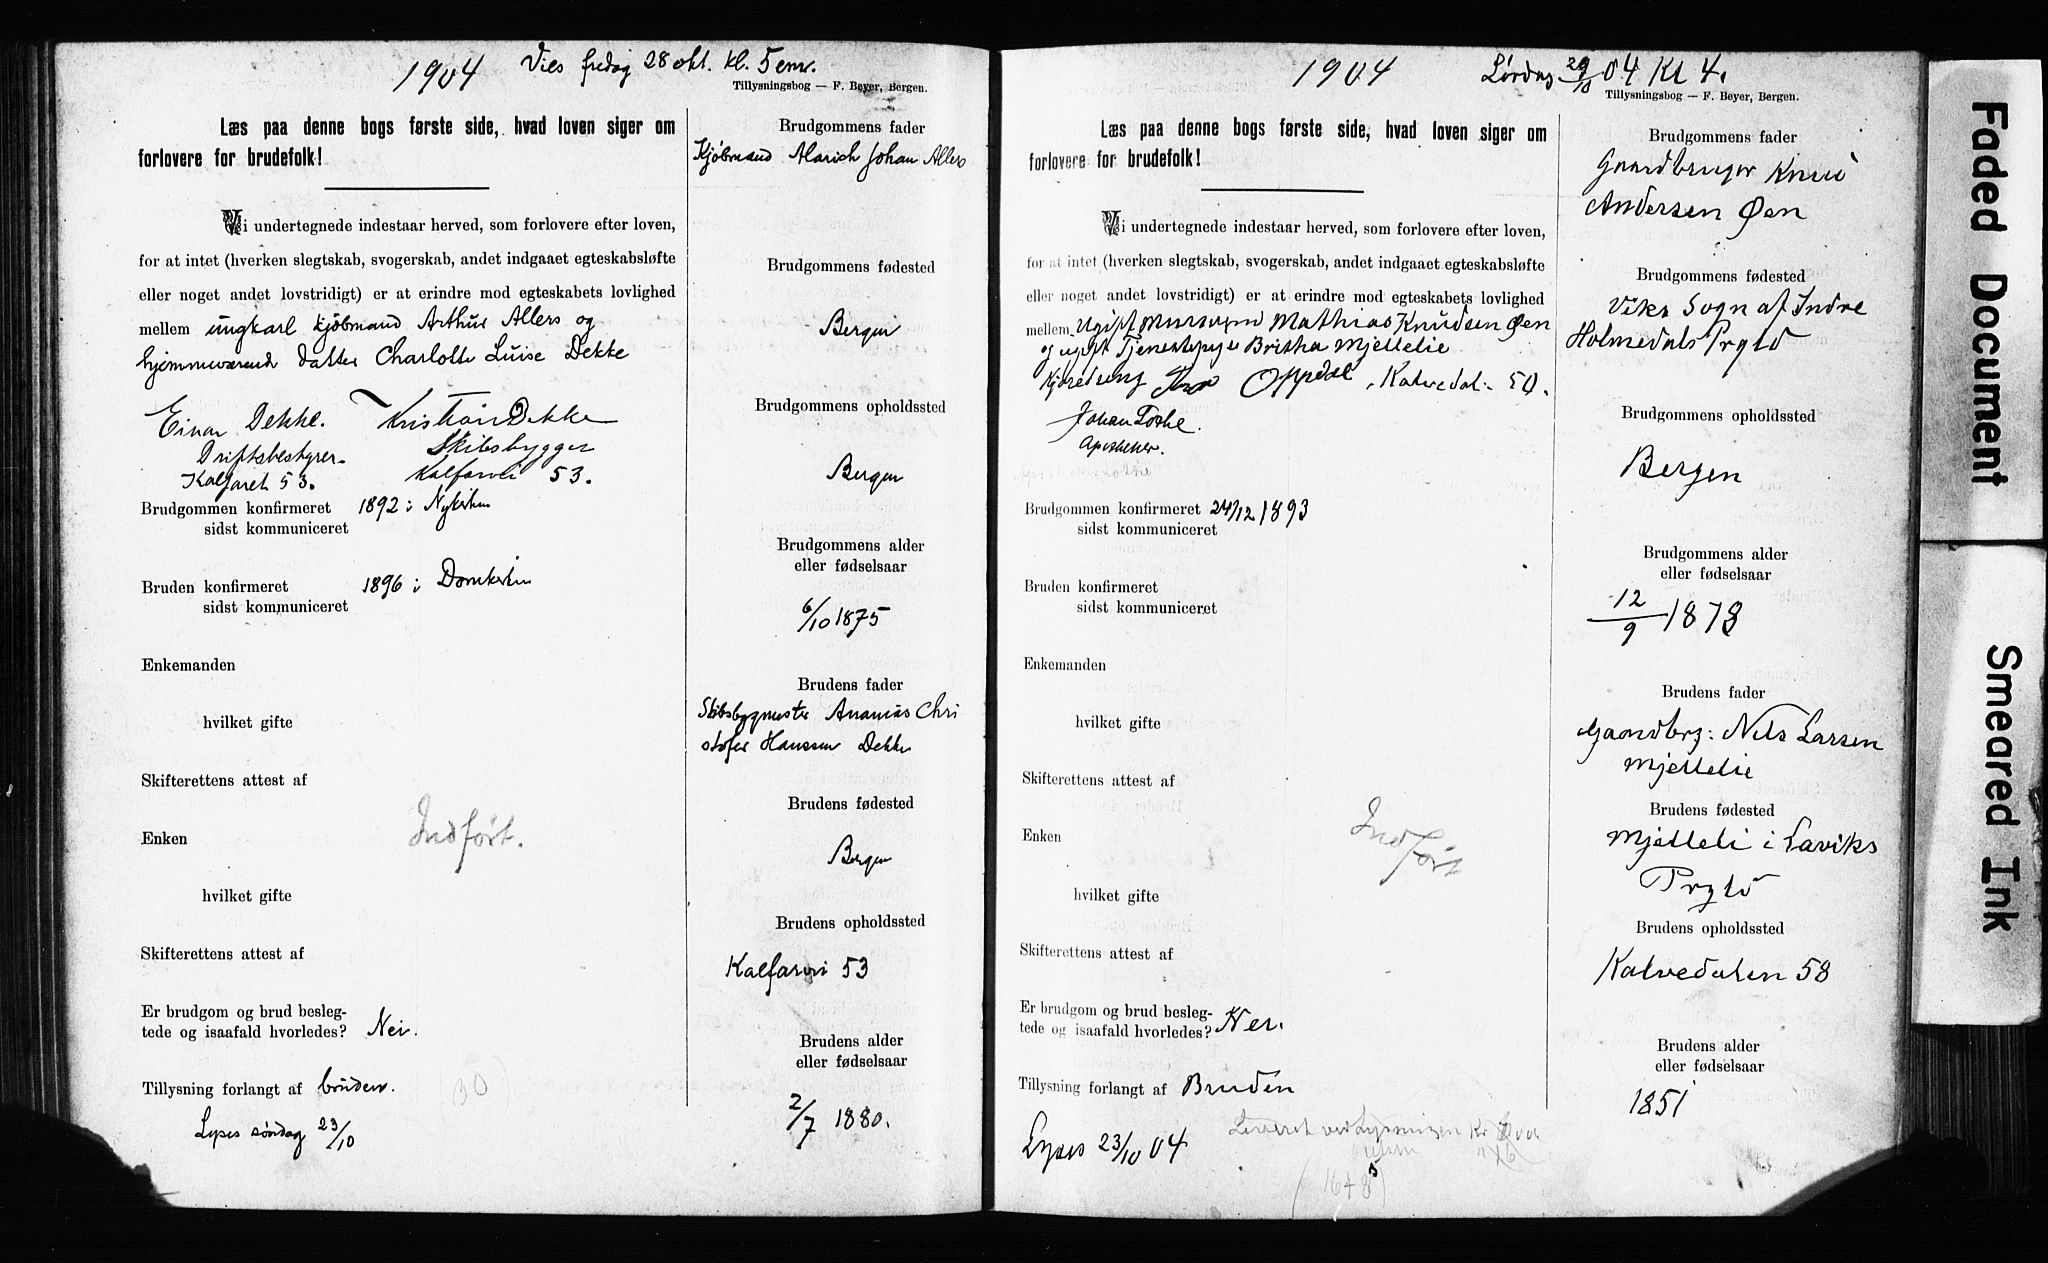 1904 Vies fredag 28 okt. kl. 5 em.
Tillysningsbog — F. Beyer, Bergen.
Læs paa denne bogs første side, hvad loven siger om
forlovere for brudefolk!
Vi undertegnede indestaar herved, som forlovere efter loven,
for at intet (hverken slegtskab, svogerskab, andet indgaaet egteskabsløfte
eller noget andet lovstridigt) er at erindre mod egteskabets lovlighed
mellem ungkarl kjøbmand Arthur Allers og
hjemmeværend datter Charlotte Luise Dekke
Einar Dekke. Kristian Dekke
Driftsbestyrer. Skibsbygger
Kalfaret 53. Kalfarvei 53.
Brudgommen konfirmeret 1892 i Nykirken
sidst kommuniceret
Bruden konfirmeret 1896 i Domkirken
sidst kommuniceret
Enkemanden
hvilket gifte
Skifterettens attest af
Indført.
Enken
hvilket gifte
Skifterettens attest af
Er brudgom og brud besleg-
tede og isaafald hvorledes? Nei.
Tillysning forlangt af bruden.
Lyses søndag 23/10
Brudgommens fader
Kjøbmand Alarich Johan Allers
Brudgommens fødested
Bergen
Brudgommens opholdssted
Bergen
Brudgommens alder
eller fødselsaar
6/10 1875
Brudens fader
Skibsbygmester Ananias Chri
stofer Hanssen Dekke
Brudens fødested
Bergen
Brudens opholdssted
Kalfarvei 53
Brudens alder
eller fødselsaar
2/7 1880.
1904 Lørdag 29/10 04 Kl 4.
Tillysningsbog — F. Beyer, Bergen.
Læs paa denne bogs første side, hvad loven siger om
forlovere for brudefolk!
Vi undertegnede indestaar herved, som forlovere efter loven,
for at intet (hverken slegtskab, svogerskab, andet indgaaet egteskabsløfte
eller noget andet lovstridigt) er at erindre mod egteskabets lovlighed
mellem Ugift Mursvend Mathias Knudsen Øen
og ugift Tjenestepige Britha Mjellelie
Oppdal, Kalvedal. 50.
Johan Lothe.
Apotheker.
Brudgommen konfirmeret 24/12 1893
sidst kommuniceret
Bruden konfirmeret
sidst kommuniceret
Enkemanden
hvilket gifte
Skifterettens attest af
Indført
Enken
hvilket gifte
Skifterettens attest af
Er brudgom og brud besleg-
tede og isaafald hvorledes? Nei.
Tillysning forlangt af Bruden
Lyses 23/10 04
Brudgommens fader
Gaardbruger Knud
Andersen Øen
Brudgommens fødested
Viks Sogn af Indre
Holmedals Prgld
Brudgommens opholdssted
Bergen
Brudgommens alder
eller fødselsaar
12/9 1878
Brudens fader
Gaardbrg: Nils Larsen
Mjellelie
Brudens fødested
Mjelleli i Laviks
Prgld
Brudens opholdssted
Kalvedalen 58
Brudens alder
eller fødselsaar
1851
Faded Document
Smeared Ink